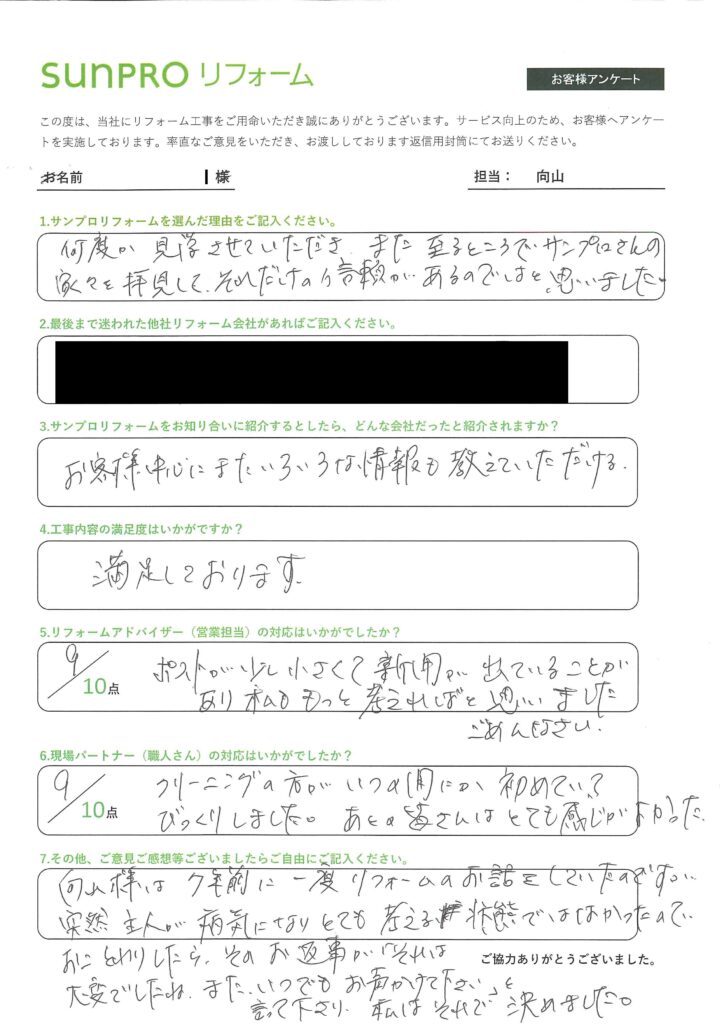 SUNPRO リフォーム
お客様アンケート
この度は、当社にリフォーム工事をご用命いただき誠にありがとうございます。サービス向上のため、お客様へアンケー
トを実施しております。率直なご意見をいただき、お渡ししております返信用封筒にてお送りください。
お名前 様
担当： 向山
1.サンプロリフォームを選んだ理由をご記入ください。
何度か 見学させていただき、また 至るところでサンプロさんの
家々を拝見して、それだけの信頼が、あるのではと思いました。
2.最後まで迷われた他社リフォーム会社があればご記入ください。
3.サンプロリフォームをお知り合いに紹介するとしたら、どんな会社だったと紹介されますか？
お客様中心にまたいろいろな情報も教えていただける。
4.工事内容の満足度はいかがですか？
満足しております。
5.リフォームアドバイザー（営業担当）の対応はいかがでしたか？
9/10点
ポストが少し小さくて新聞が出ていることが
あり私ももっと考えればと思いました
ごめんなさい。
6.現場パートナー（職人さん）の対応はいかがでしたか？
9/10点
クリーニングの方がいつの間にか初めていて
びっくりしました。あとの皆さんはとても感じがよかった
7.その他、ご意見ご感想等ございましたらご自由にご記入ください。
向山様は 7年前に一度リフォームのお話をしていたのですが、
突然主人が病気になりとても考える状態ではなかったので、
おことわりしたら、そのお返事が「それは
ご協力ありがとうございました。
大変でしたね、また、いつでもお声かけて下さい」と
言って下さり、私はそれで決めました。